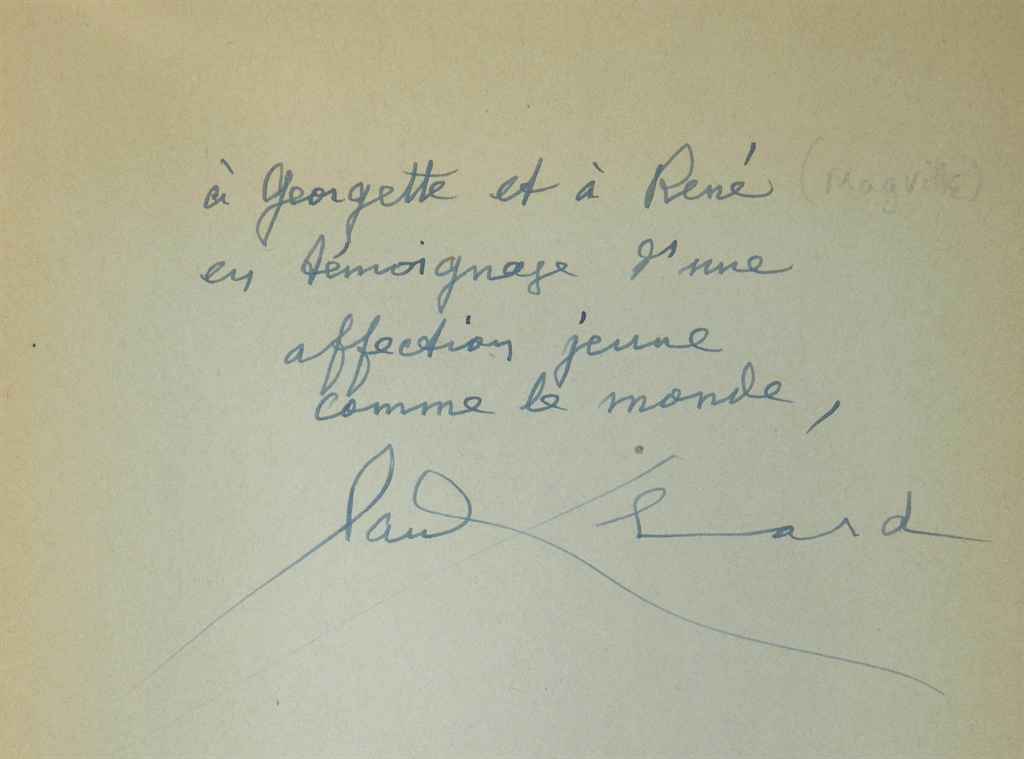 à Georgette et à René (Magville)
en témoignage d'une
affection jeune
comme le monde,
Paul Eluard